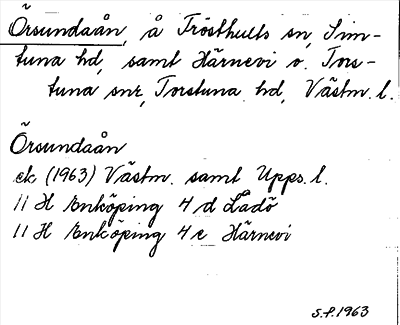 Örsundaån, å Frösthults sn, Sim-
tuna hd, samt Härnevi o. Tors-
tuna snr, Torstuna hd, Västm. l.
Örsundaån
ek (1963) Västm. samt Upps. l.
11 H Enköping 4 d Ladö
11 H Enköping 4 e Härnevi
S.F. 1963